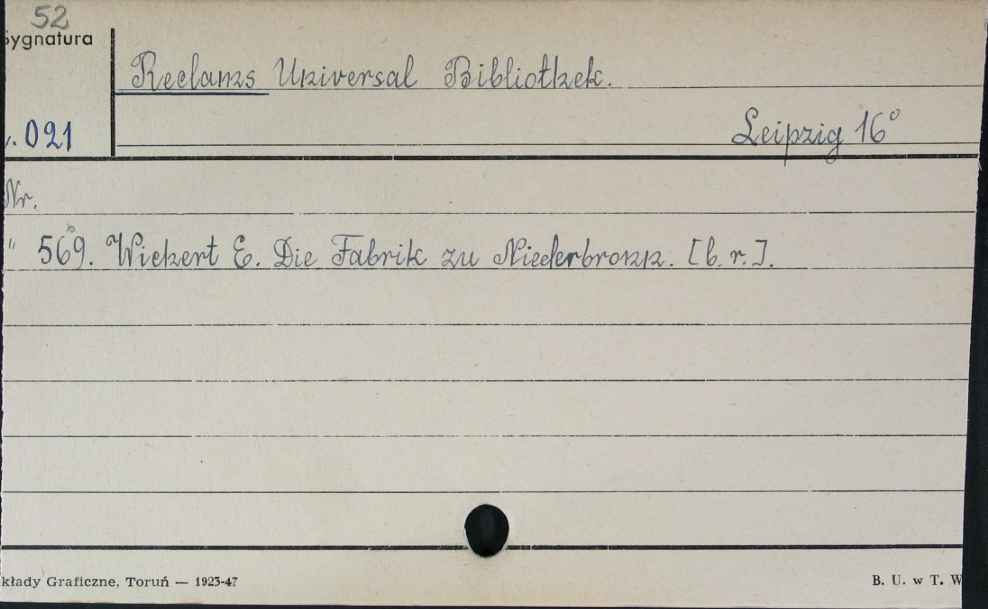 52
Sygnatura
Reclams Universal Bibliothek.
021
Leipzig 16°
Nr.
" 569. Wichert E. Die Fabrik zu Niederbronn. [b. r.].
kłady Graficzne, Toruń — 1923-47
B. U. w T. W